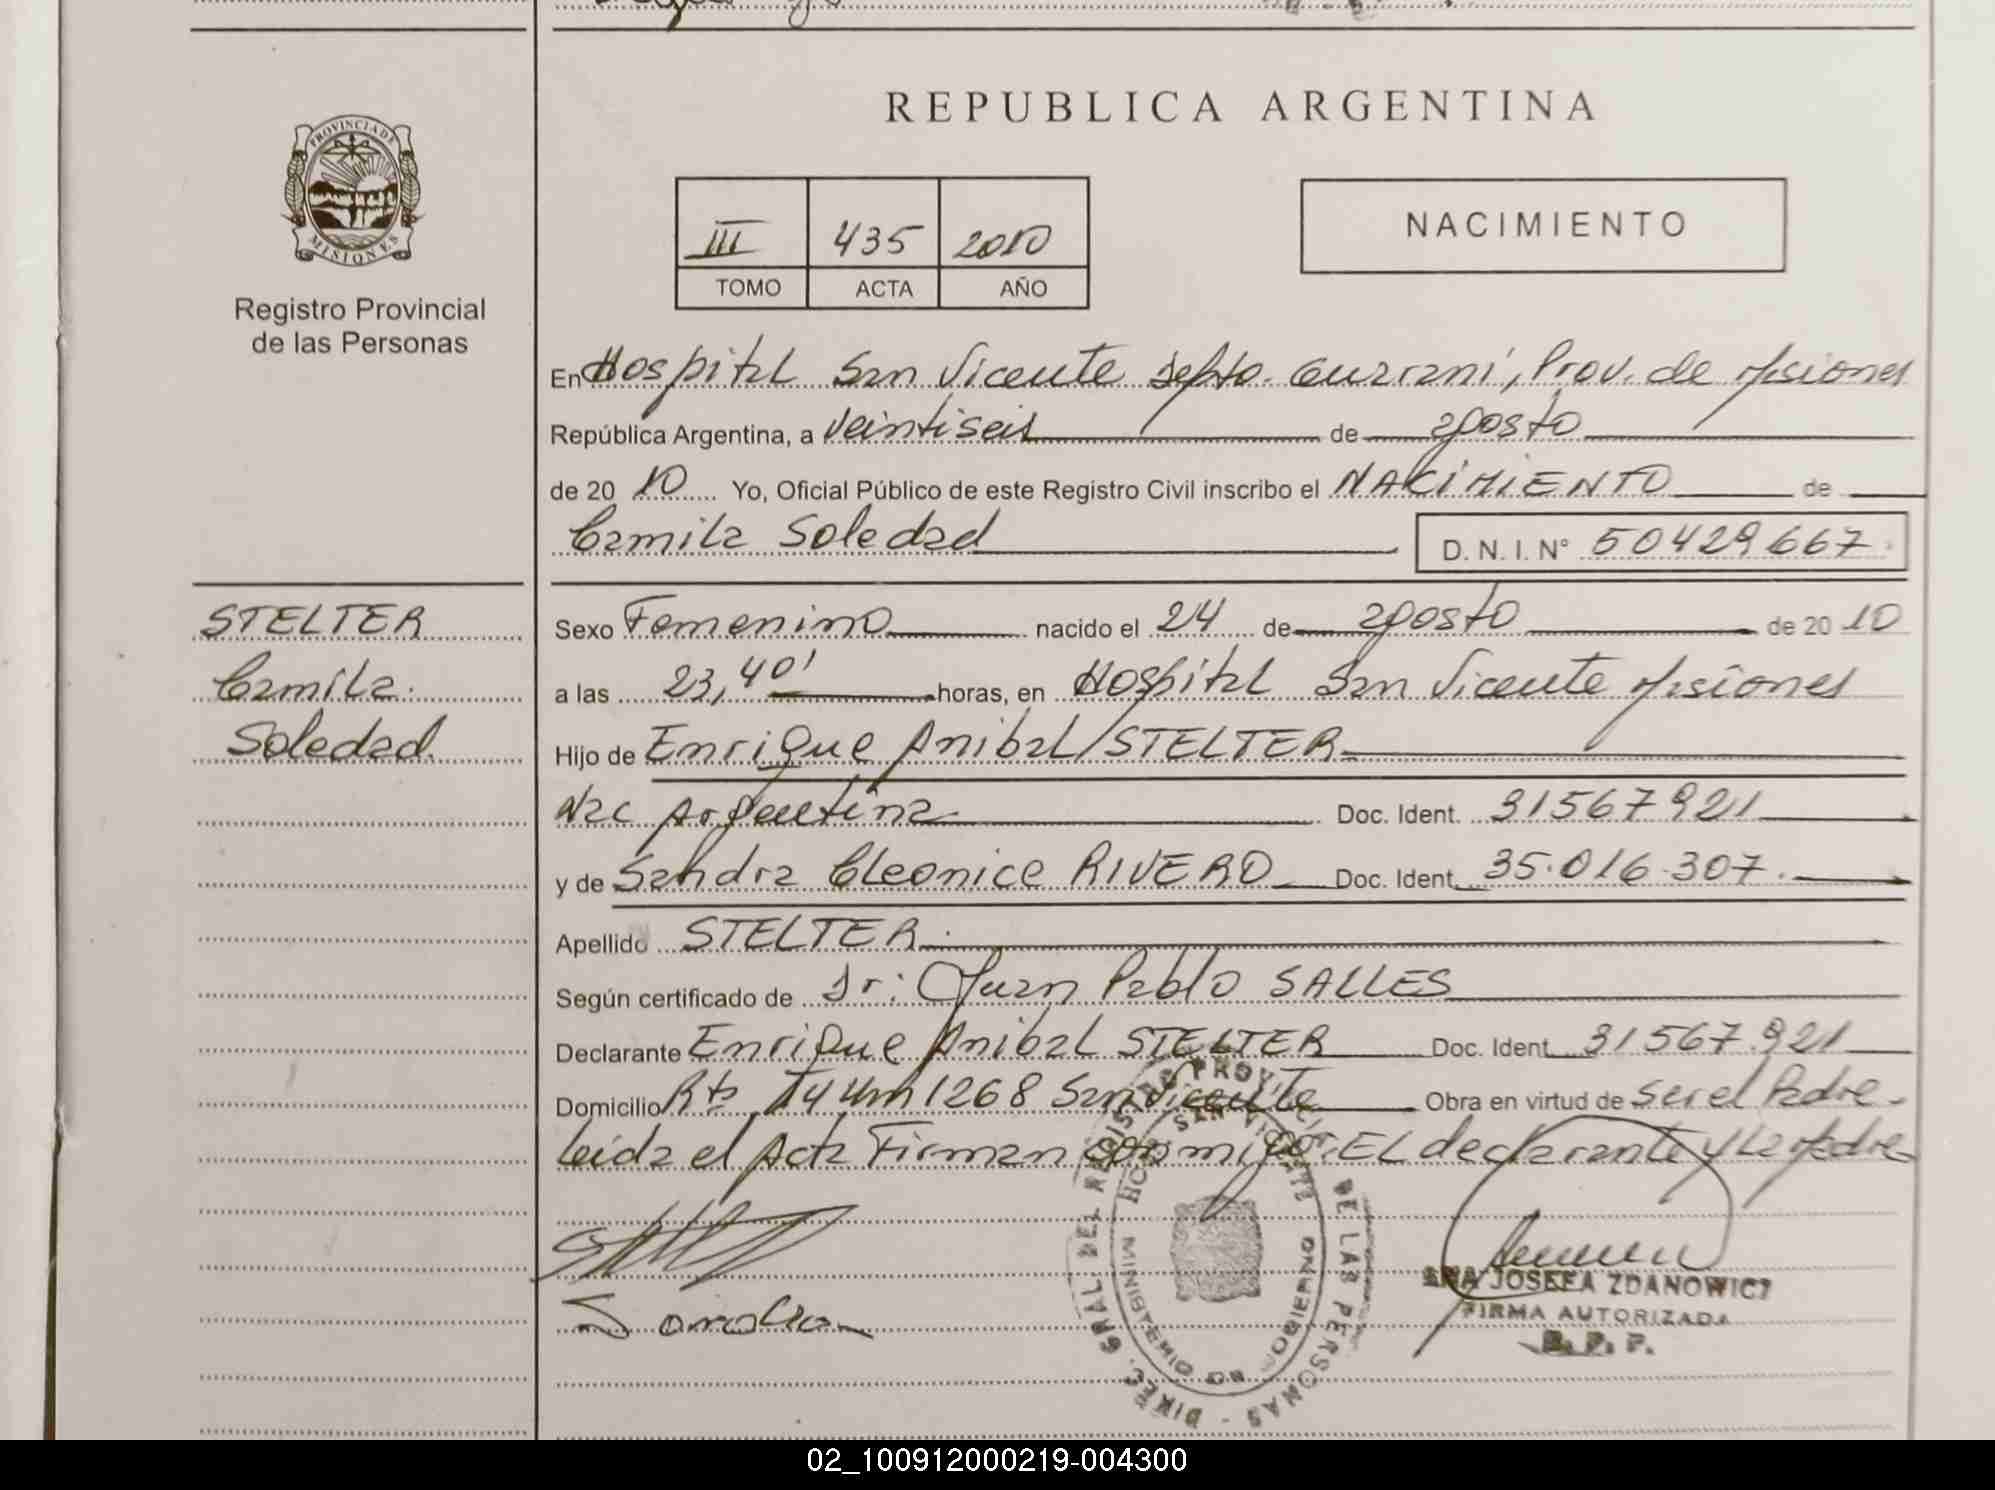 REPUBLICA ARGENTINA
PROVINCIA DE
MISIONES
Registro Provincial
de las Personas
III 435 2010
TOMO ACTA AÑO
NACIMIENTO
En Hospital San Vicente Depto. Guarani, Prov. de Misiones
República Argentina, a veintiseis de agosto
de 20 10 Yo, Oficial Público de este Registro Civil inscribo el NACIMIENTO de
Camila Soledad D. N. I. N° 50429667
STELTER
Camila
Soledad
Sexo Femenino nacido el 24 de agosto de 20 10
a las 23,40' horas, en Hospital San Vicente Misiones
Hijo de Enrique Anibal STELTER
Nac Argentina Doc. Ident. 31567921
y de Sandra Cleonice RIVERO Doc. Ident. 35.016.307.
Apellido STELTER
Según certificado de Dr: Juan Pablo SALLES
Declarante Enrique Anibal STELTER Doc. Ident. 31567.921
Domicilio Rta 14 Km 1268 San Vicente Obra en virtud de ser el Padre.
Leida el Acta Firman conmigo: EL declarante y La Madre
DIREC. GRAL DEL REGISTRO PROVINCIAL DE LAS PERSONAS
SAN VICENTE
MINISTERIO DE GOBIERNO
JOSEFA ZDANOWICZ
FIRMA AUTORIZADA
R. P. P.
02_100912000219-004300